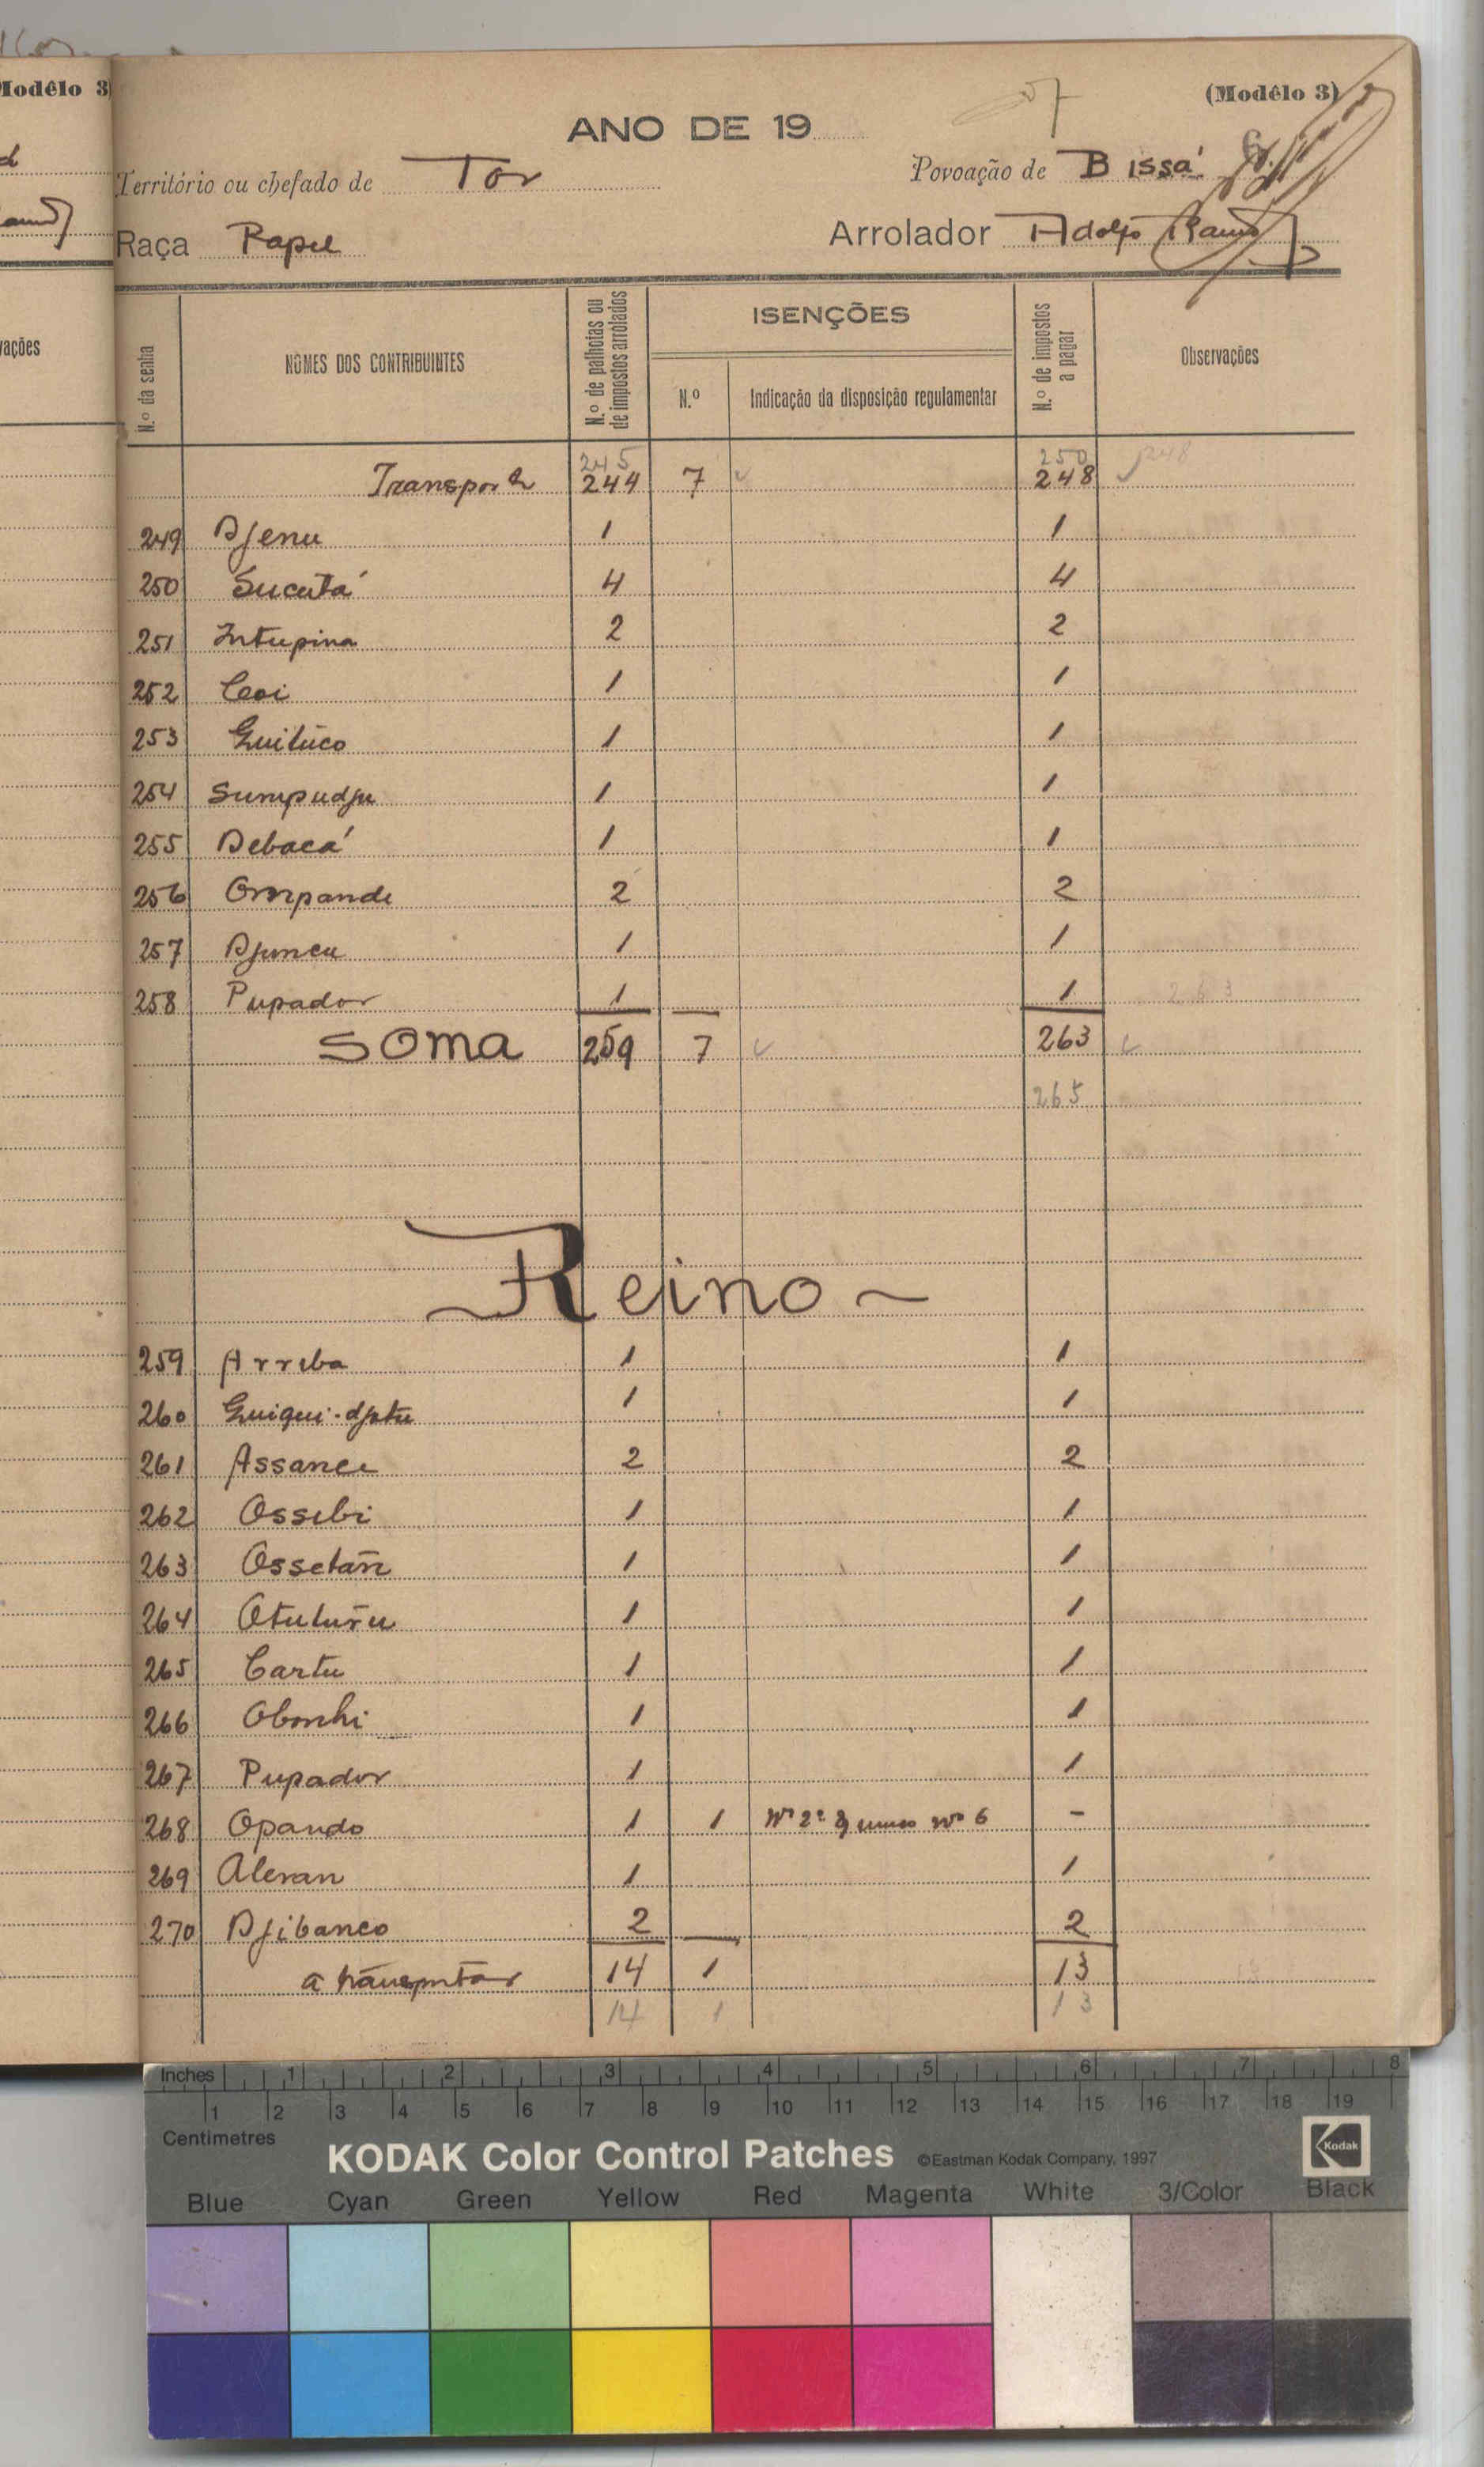 Modêlo 3)
(Modêlo 3)
ANO DE 19
Território ou chefado de Tor
Povoação de Bissá
Raça Papel
Arrolador Adolfo Ramos
vações
N.º da senha
NÔMES DOS CONTRIBUINTES
N.º de palhotas ou de impostos arrolados
ISENÇÕES
N.º
Indicação da disposição regulamentar
N.º de impostos a pagar
Observações
245 250 248
Transporte 244 7 248
249 Djenu 1 1
250 Sucutá 4 4
251 Intupina 2 2
252 Coi 1 1
253 Guitúco 1 1
254 Sumpudju 1 1
255 Debacá 1 1
256 Ompande 2 2
257 Djuncu 1 1
258 Pupador 1 1 263
SOMA 259 7 263
265
Reino
259 Arriba 1 1
260 Guigui-djatu 1 1
261 Assance 2 2
262 Ossibi 1 1
263 Ossetañ 1 1
264 Otuturu 1 1
265 Cartu 1 1
266 Obonhi 1 1
267 Pupador 1 1
268 Opando 1 1 Nº 2º nº 6 -
269 Aleran 1 1
270 Djibanco 2 2
a transportar 14 1 13
14 1 13
Inches 1 2 3 4 5 6 7 8
1 2 3 4 5 6 7 8 9 10 11 12 13 14 15 16 17 18 19
Centimetres
KODAK Color Control Patches ©Eastman Kodak Company, 1997 Kodak
Blue Cyan Green Yellow Red Magenta White 3/Color Black